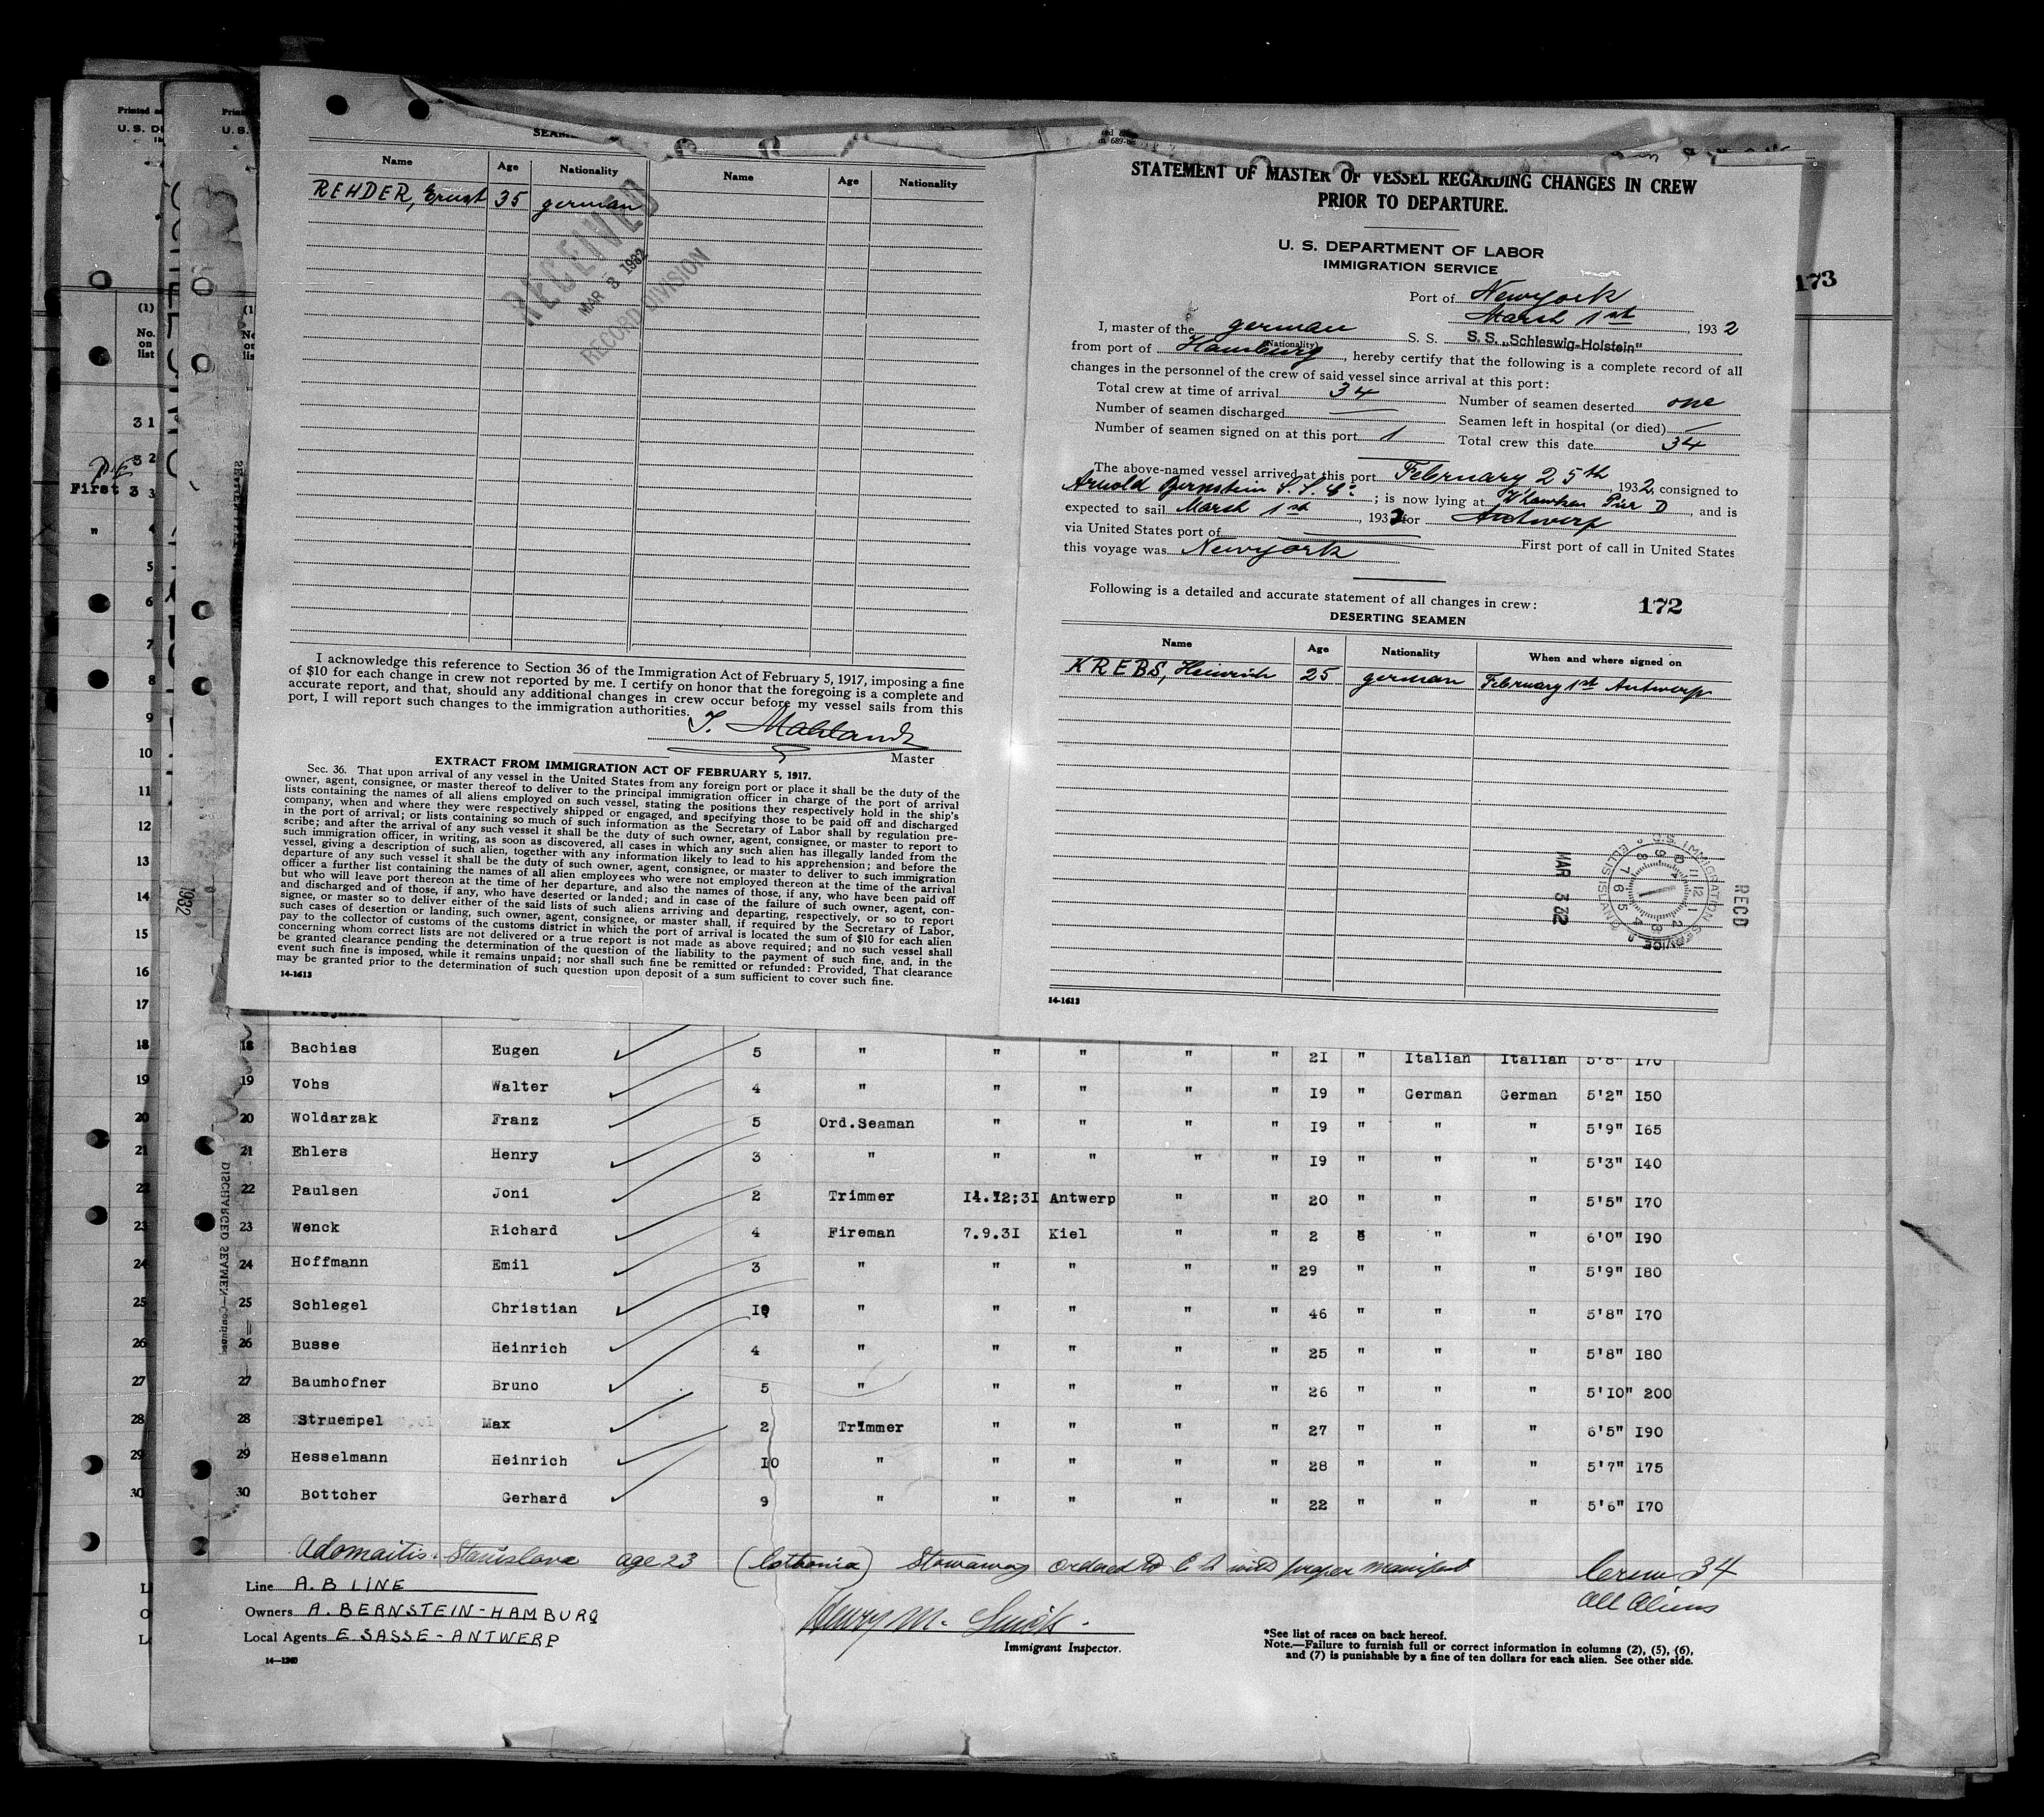 Printed
U. S.
173
(1)
No.
on
list
31
32
First 3 3
" 4
5
6
7
8
9
10
11
12
13
14
15
16
17
18
19
20
21
22
23
24
25
26
27
28
29
30
1932
DISCHARGED SEAMEN—Continued
Name Age Nationality Name Age Nationality
REHDER, Ernst 35 german
RECEIVED
MAR 3 1932
RECORD DIVISION
I acknowledge this reference to Section 36 of the Immigration Act of February 5, 1917, imposing a fine
of $10 for each change in crew not reported by me. I certify on honor that the foregoing is a complete and
accurate report, and that, should any additional changes in crew occur before my vessel sails from this
port, I will report such changes to the immigration authorities.
Master
EXTRACT FROM IMMIGRATION ACT OF FEBRUARY 5, 1917.
Sec. 36. That upon arrival of any vessel in the United States from any foreign port or place it shall be the duty of the
owner, agent, consignee, or master thereof to deliver to the principal immigration officer in charge of the port of arrival
lists containing the names of all aliens employed on such vessel, stating the positions they respectively hold in the ship's
company, when and where they were respectively shipped or engaged, and specifying those to be paid off and discharged
in the port of arrival; or lists containing so much of such information as the Secretary of Labor shall by regulation pre-
scribe; and after the arrival of any such vessel it shall be the duty of such owner, agent, consignee, or master to report to
such immigration officer, in writing, as soon as discovered, all cases in which any such alien has illegally landed from the
vessel, giving a description of such alien, together with any information likely to lead to his apprehension; and before the
departure of any such vessel it shall be the duty of such owner, agent, consignee, or master to deliver to such immigration
officer a further list containing the names of all alien employees who were not employed thereon at the time of the arrival
but who will leave port thereon at the time of her departure, and also the names of those, if any, who have been paid off
and discharged and of those, if any, who have deserted or landed; and in case of the failure of such owner, agent, con-
signee, or master so to deliver either of the said lists of such aliens arriving and departing, respectively, or so to report
such cases of desertion or landing, such owner, agent, consignee, or master shall, if required by the Secretary of Labor,
pay to the collector of customs of the customs district in which the port of arrival is located the sum of $10 for each alien
concerning whom correct lists are not delivered or a true report is not made as above required; and no such vessel shall
be granted clearance pending the determination of the question of the liability to the payment of such fine, and, in the
event such fine is imposed, while it remains unpaid; nor shall such fine be remitted or refunded: Provided, That clearance
may be granted prior to the determination of such question upon deposit of a sum sufficient to cover such fine.
14-1613
STATEMENT OF MASTER OF VESSEL REGARDING CHANGES IN CREW
PRIOR TO DEPARTURE.
U. S. DEPARTMENT OF LABOR
IMMIGRATION SERVICE
Port of Newyork
Marsh 1st, 1932
I, master of the german S. S. S. S. „Schleswig-Holstein"
(Nationality)
from port of Hamburg, hereby certify that the following is a complete record of all
changes in the personnel of the crew of said vessel since arrival at this port:
Total crew at time of arrival 34 Number of seamen deserted one
Number of seamen discharged — Seamen left in hospital (or died) —
Number of seamen signed on at this port 1 Total crew this date 34
The above-named vessel arrived at this port February 25th, 1932, consigned to
Arnold Bernstein S. S. Co; is now lying at Pier D, and is
expected to sail Marsh 1st, 1932 for Antwerp
via United States port of — First port of call in United States
this voyage was Newyork
Following is a detailed and accurate statement of all changes in crew: 172
DESERTING SEAMEN
Name Age Nationality When and where signed on
KREBS, Heinrich 25 german February 1st Antwerp
RECD
MAR 3 32
U.S. IMMIGRATION SERVICE
ELLIS ISLAND
14-1613
18 Bachias Eugen 5 " " " " " 21 " Italian Italian 5'8" 170
19 Vohs Walter 4 " " " " " 19 " German German 5'2" 150
20 Woldarzak Franz 5 Ord.Seaman " " " " 19 " " " 5'9" 165
21 Ehlers Henry 3 " " " " " 19 " " " 5'3" 140
22 Paulsen Joni 2 Trimmer 14.12;31 Antwerp " " 20 " " " 5'5" 170
23 Wenck Richard 4 Fireman 7.9.31 Kiel " " 2 8 " " 6'0" 190
24 Hoffmann Emil 3 " " " " " 29 " " 5'9" 180
25 Schlegel Christian 10 " " " " " 46 " " " 5'8" 170
26 Busse Heinrich 4 " " " " " 25 " " " 5'8" 180
27 Baumhofner Bruno 5 " " " " " 26 " " " 5'10" 200
28 Struempel Max 2 Trimmer " " " " 27 " " " 6'5" 190
29 Hesselmann Heinrich 10 " " " " " 28 " " " 5'7" 175
30 Bottcher Gerhard 9 " " " " " 22 " " " 5'6" 170
Adomaitis Stanislava age 23 Stowaway ordered to with proper manifest
Crew 34
All Aliens
Line A. B LINE
Owners A. BERNSTEIN-HAMBURG
Local Agents E. SASSE-ANTWERP
Henry M.
Immigrant Inspector.
*See list of races on back hereof.
Note.—Failure to furnish full or correct information in columns (2), (5), (6),
and (7) is punishable by a fine of ten dollars for each alien. See other side.